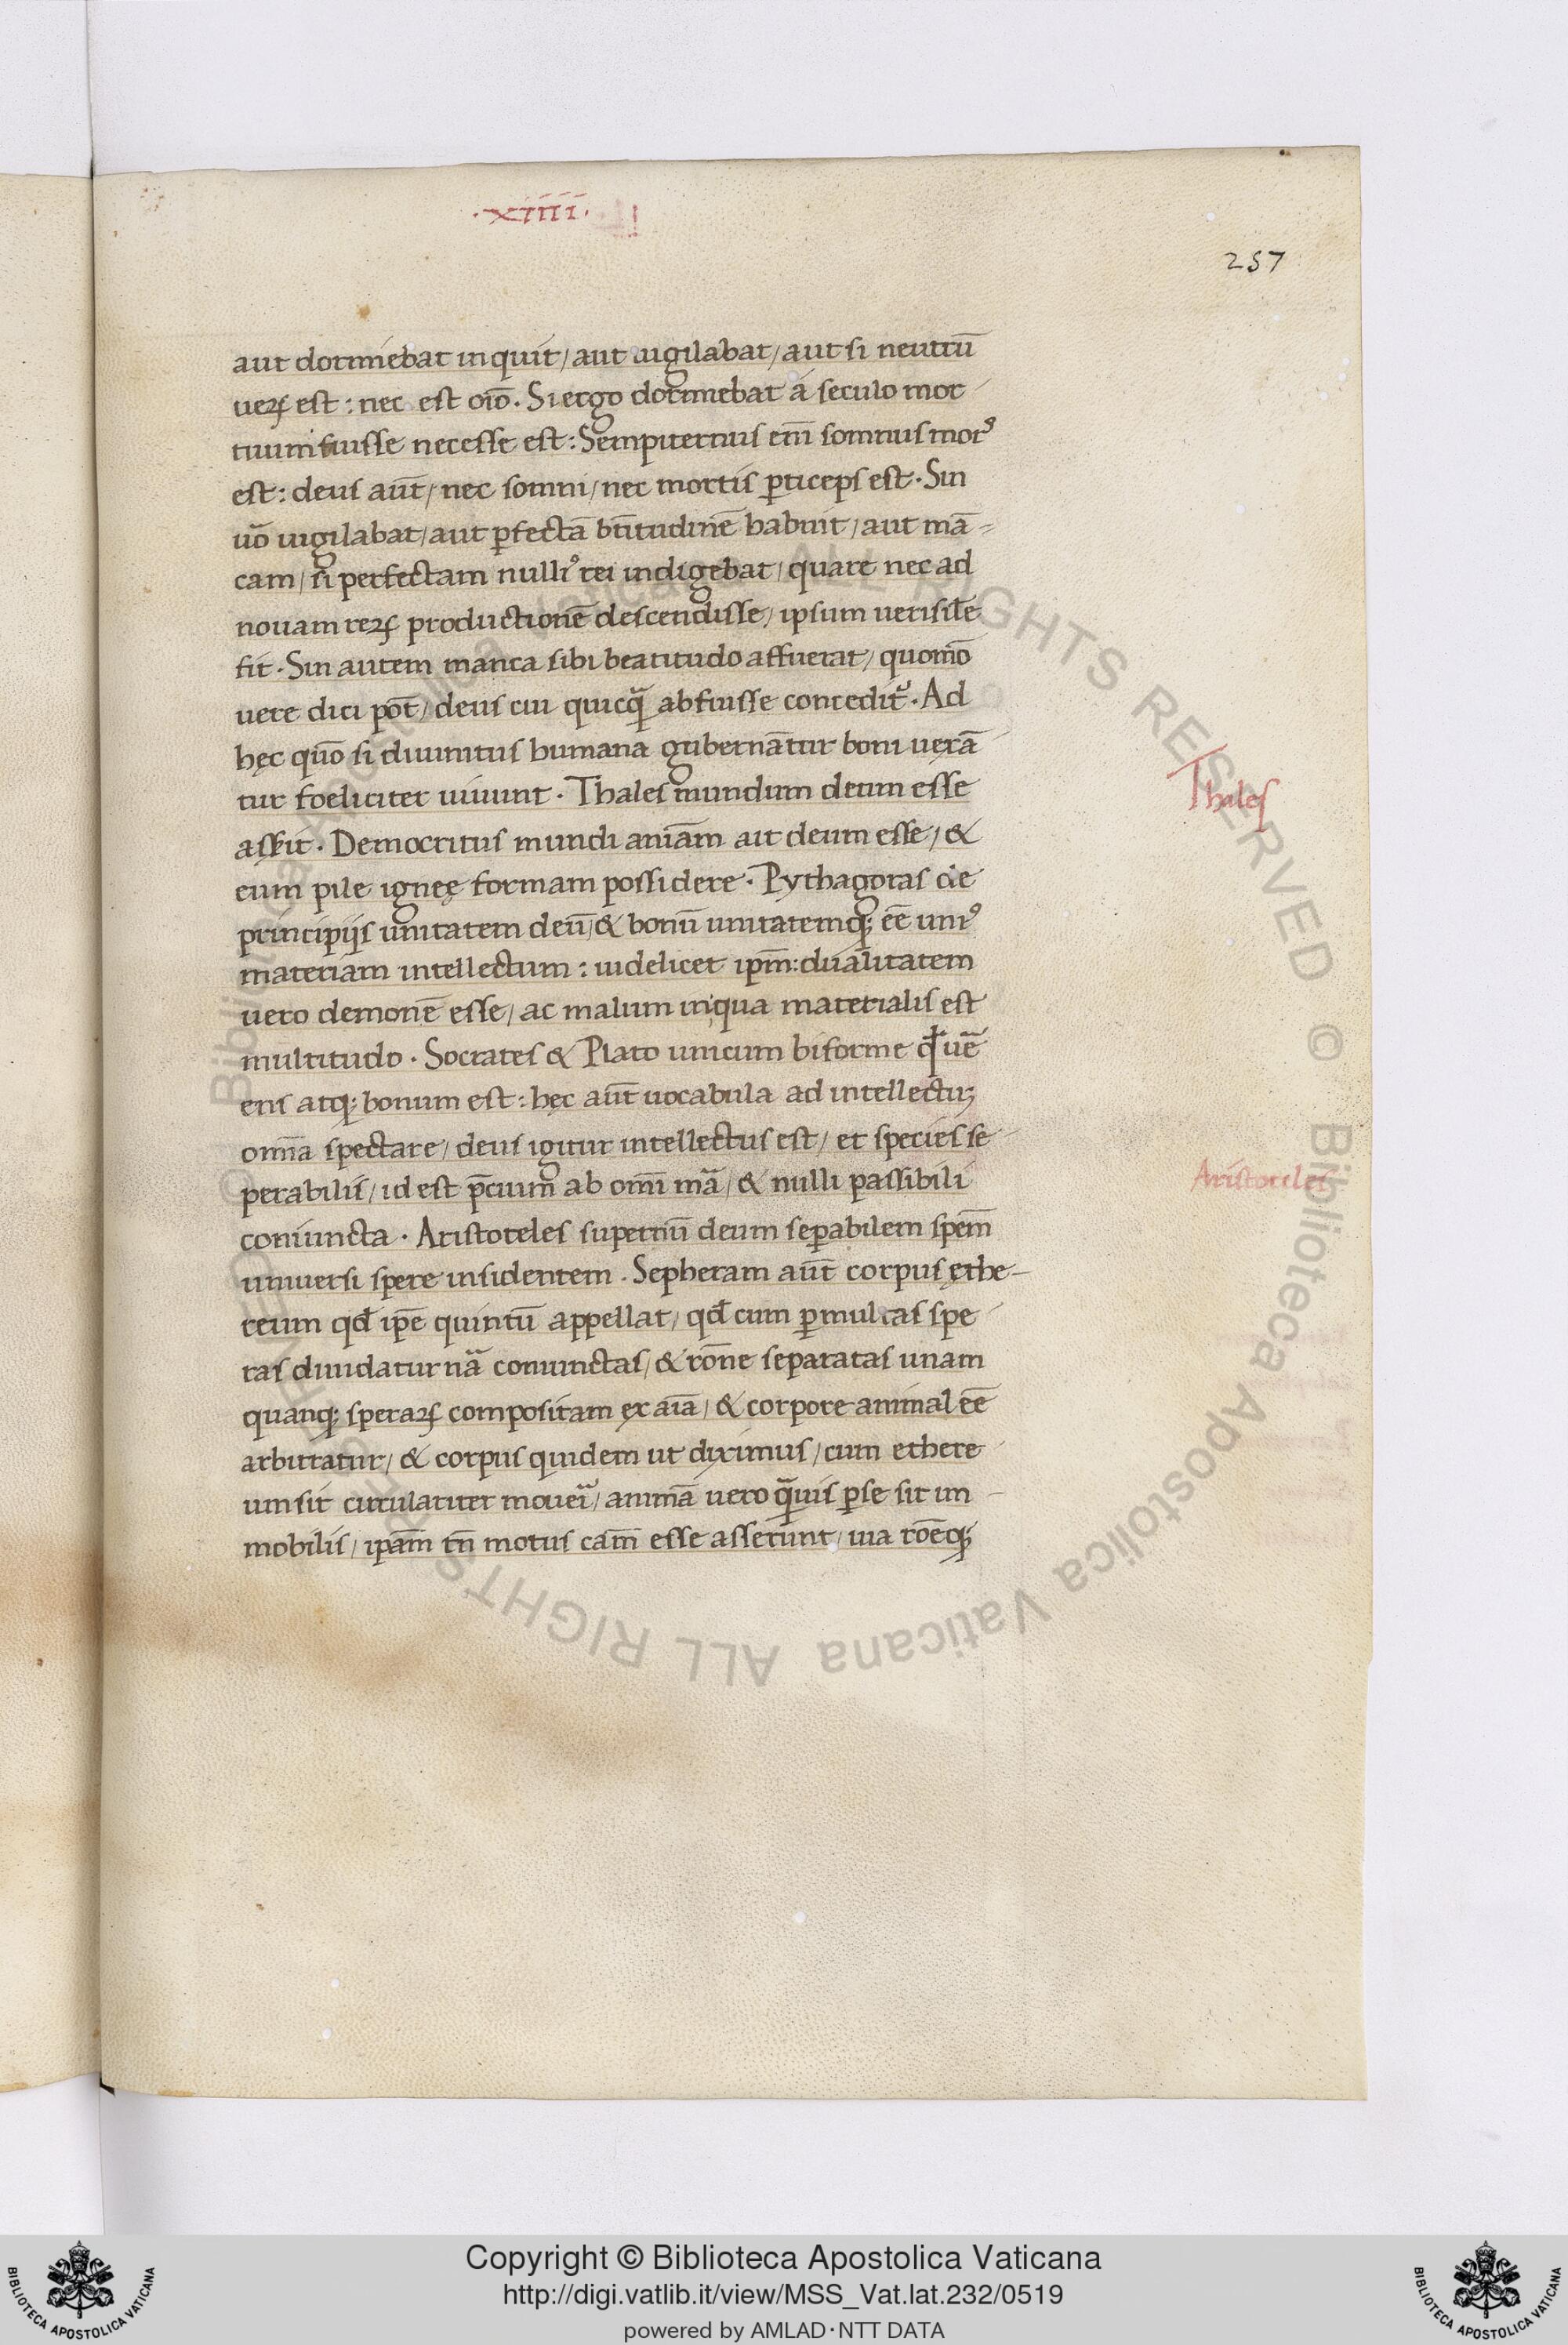 ·xiiii·
257
aut dormiebat inquit/ aut uigilabat/ aut si neutrū
ueꝝ est: nec est oīo. Si ergo dormiebat a seculo mor
tuum fuisse necesse est: Sempiternus em̄ somnus morꝰ
est: deus aūt/ nec somni/ nec mortis ꝑticeps est. Sin
uō uigilabat/ aut ꝑfectā btītudinē habuit/ aut mā-
cam/ si perfectam nulliꝰ rei indigebat/ quare nec ad
nouam reꝝ productionē descendisse/ ipsum uerisil̄e
fit. Sin autem manca sibi beatitudo affuerat/ quomō
uere dici pōt/ deus cui quicq̄ abfuisse concedit᷑. Ad
hęc quō si diuinitus humana gubernātur boni uexā
tur foeliciter uiuunt. Thales mundum deum esse
asẜit. Democritus mundi aniām ait deum esse/ &
eum pile ignęę formam possidere. Pythagoras de
principijs unitatem deū/ & bonū unitatemqꝫ eē uniꝰ
materiam intellectum: uidelicet ip̄m: dualitatem
uero demonē esse/ ac malum in qua materialis est
multitudo. Socrates & Plato unicum biforme
ens atqꝫ bonum est: hęc aūt uocabula ad intellectuꝫ
omīa spectare/ deus igitur intellectus est/ et species se
perabilis/ id est p̄cuum ab omī mā/ & nulli passibili
coniuncta. Aristoteles supernū deum seꝑabilem sp̄em
uniuersi spere insidentem. Sepheram aūt corpus ęthe-
reum qđ ip̄e quintū appellat/ qđ cum ꝑmultas spe
ras diuidatur nā coniunctas/ & rōne separatas unam
quanqꝫ speraꝝ compositam ex aīa/ & corpore animal eē
arbitratur/ & corpus quidem ut diximus/ cum ethere
um sit circulariter mouer̄/ animā uero q̄uis ꝑse sit im
mobilis/ ip̄am tn̄ motus cām esse asserunt/ uia rōeqꝫ
Thales
Aristoteles
© Biblioteca Apostolica Vaticana ALL RIGHTS RESERVED
© Biblioteca Apostolica Vaticana ALL RIGHTS RESERVED
BIBLIOTECA APOSTOLICA VATICANA
Copyright © Biblioteca Apostolica Vaticana
http://digi.vatlib.it/view/MSS_Vat.lat.232/0519
powered by AMLAD·NTT DATA
BIBLIOTECA APOSTOLICA VATICANA